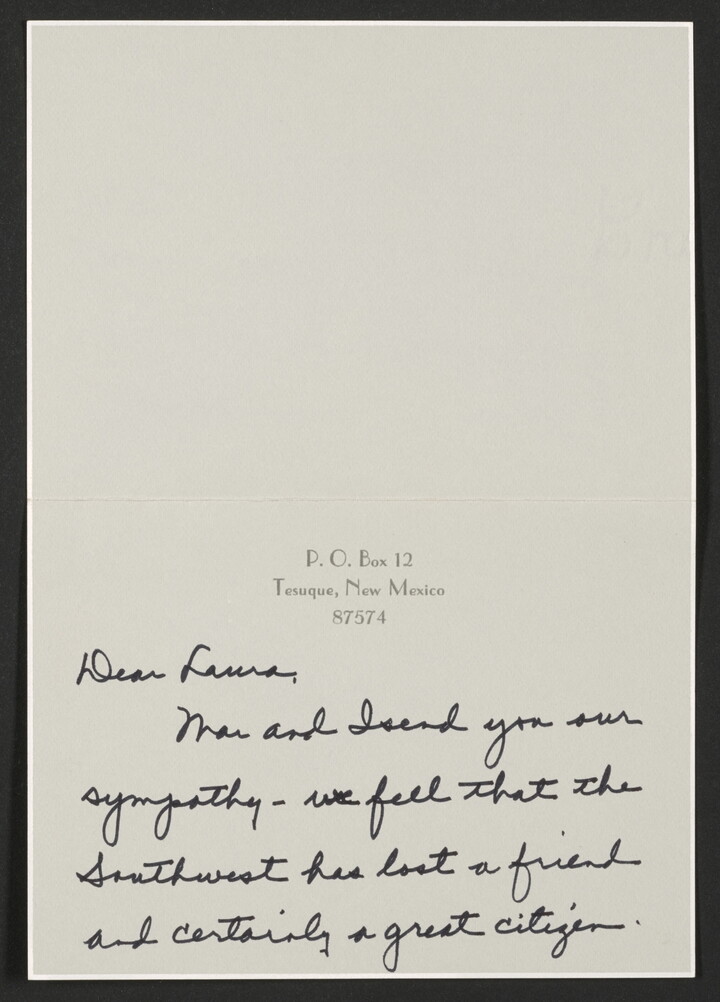 P. O. Box 12
Tesuque, New Mexico
87574
Dear Laura,
and I send you our
sympathy - we feel that the
Southwest has lost a friend
and certainly a great citizen.